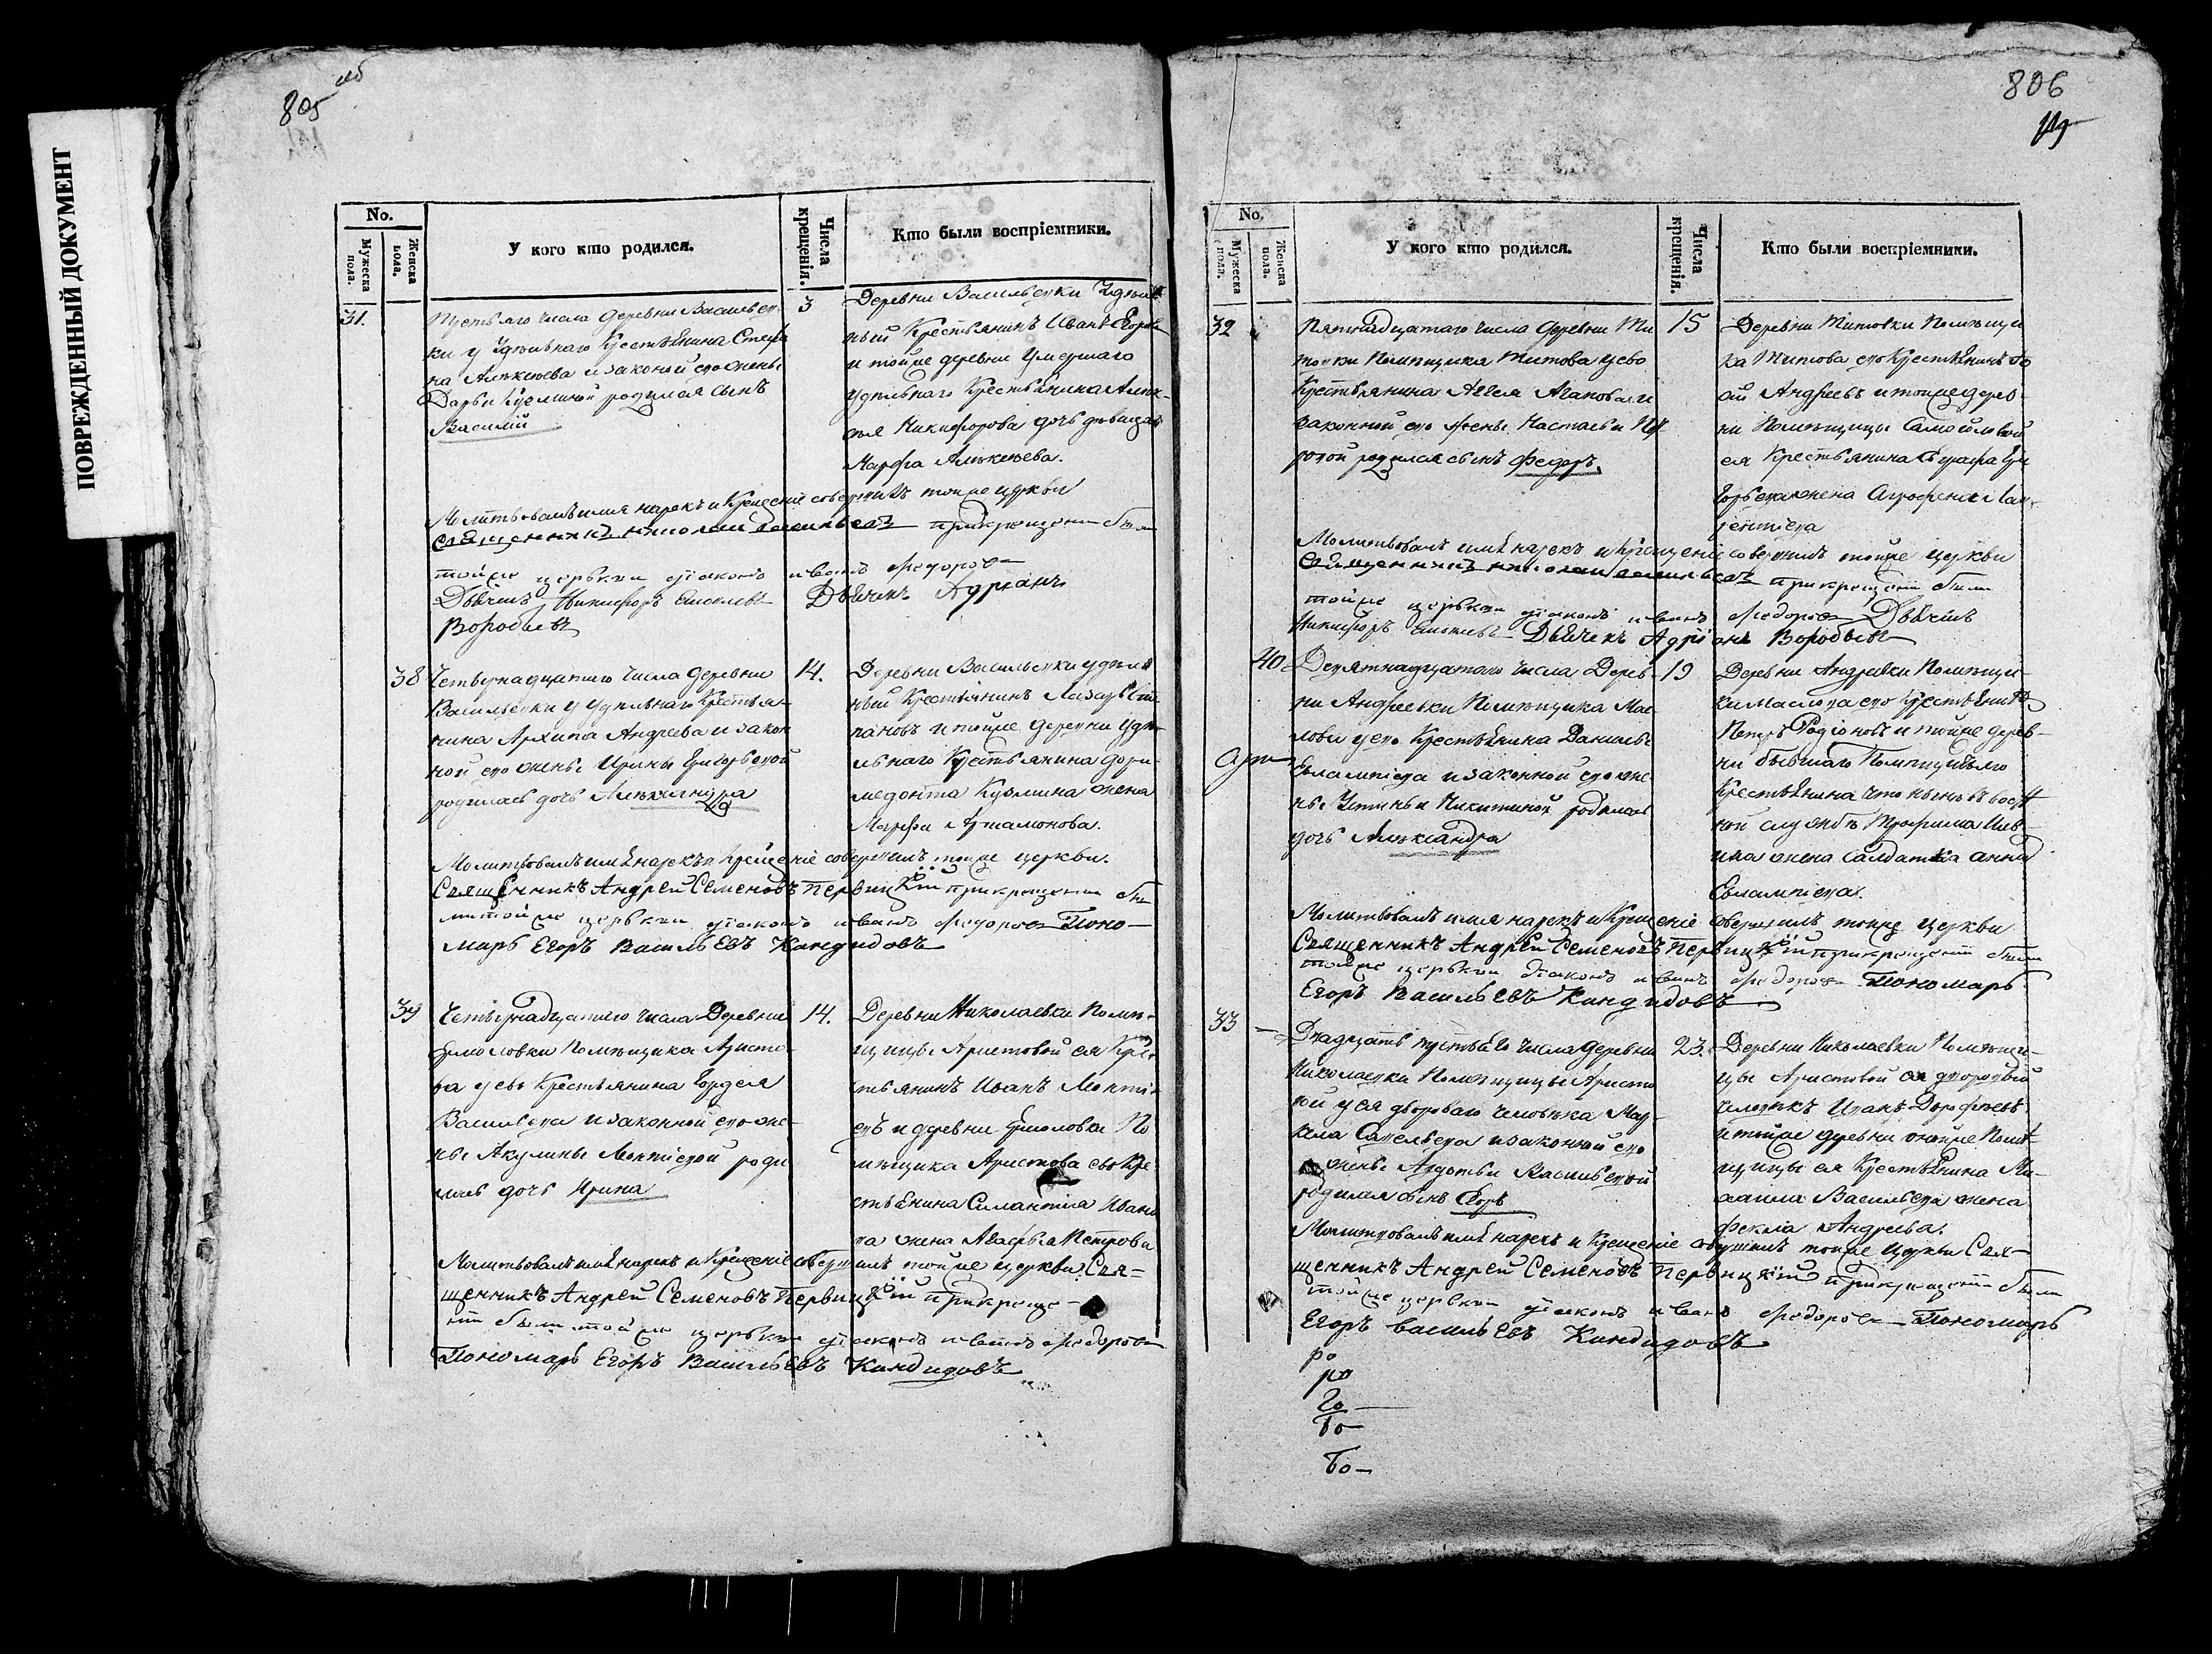 ПОВРЕЖДЕННЫЙ ДОКУМЕНТ
805
No.
Мужеска пола.
Женска пола.
У кого кто родился.
Числа крещенія.
Кто были воспріемники.
31.
Третьяго числа деревни Васильев
ки у Удѣльнаго Крестьянина Степа
на Алексѣева и законой его жены
Дарьи Кузминой родился сынъ
Василій
3
Деревни Васильевки Удѣль
ный Крестьянинъ Иванъ Егоровъ
и тойже деревни Умершаго
удѣльнаго Крестьянина Алек-
сѣя Никифорова дочь дѣвица
Марфа Алексѣева.
Молитвовалъ имя нарекъ и Крещеніе совершилъ тойже церкви
Священникъ Николай Васильевъ прикрещении были
тойже церкви диаконъ иванъ федоровъ
Дьячекъ Никифоръ Дьячекъ Адріанъ
Воробьевъ
38
Четвернадцатаго числа деревни
Васильевки у Удѣльнаго Крестья-
нина Архипа Андреева и закон
ной его жены Ирины Григорьевой
родилась дочь Александра
14.
Деревни Васильевки удѣль
ный Крестьянинъ Лазарь Сте
пановъ и тойже деревни Удѣ-
льнаго Крестьянина дори-
медонта Кузмина жена
Марфа Артамонова.
Молитвовалъ имя нарекъ и Крещеніе совершилъ тойже церкви.
Священникъ Андрей Семеновъ Первицкій прикрещении бы
ли тойже церкви диаконъ иванъ федоровъ Поно-
марь Егоръ Васильевъ Кандидовъ
39
Четвернадцатаго числа Деревни
Ермоловки Помѣщика Аристо-
ва у ево Крестьянина Гордея
Васильева и законной его же-
ны Акулины Леонтьевой роди
лась дочь Ирина
14.
Деревни Николаевки Помѣ-
щицы Аристовой ея Кре-
стьянинъ Иванъ Леонть-
евъ и деревни Ермоловки По
мѣщика Аристова ево Кре
стьянина Силантія Ивано
ва жена Агафья Петрова
Молитвовалъ имя нарекъ и Крещеніе совершилъ тойже церкви Свя-
щенникъ Андрей Семеновъ Первицкій прикреще-
нии были тойже церкви диаконъ иванъ федоровъ
Пономарь Егоръ Васильевъ Кандидовъ
806
No.
Мужеска пола.
Женска пола.
У кого кто родился.
Числа крещенія.
Кто были воспріемники.
32
Пятнадцатаго числа деревни Ти
товки Помѣщика Титова у ево
Крестьянина
законной его жены Настасьи
родился сынъ Федоръ.
15
Деревни Титовки Помѣщи
ка Титова его Крестьянинъ
Андреевъ и тойже дерев-
ни Помѣщицы Самойловой
ея Крестьянина
жена Аграфена
Молитвовалъ имя нарекъ и крещеніе совершилъ тойже церкви
Священникъ Николай Васильевъ прикрещении были
тойже церкви диаконъ иванъ федоровъ Дьячекъ
Никифоръ Дьячекъ Адріанъ Воробьевъ
40
Девятнадцатаго числа Дерев-
ни Андреевки Помѣщика Мас
лова у его Крестьянина Данилы
Евлампіева и законной его же-
ны Устиньи Никитиной родилась
дочь Александра
19
Деревни Андреевки Помѣщи-
ка Маслова его Крестьянинъ
Петръ Родіоновъ и тойже дерев-
ни бывшаго Помѣщичьяго
Крестьянина что нынѣ въ воен
ной службѣ Трофима
жена Салдатка Анна
Евлампіева.
Молитвовалъ имя нарекъ и Крещеніе совершилъ тойже церкви
Священникъ Андрей Семеновъ Первицкій прикрещении были
тойже церкви диаконъ иванъ федоровъ Пономарь
Егоръ Васильевъ Кандидовъ
33
Двадцать третьяго числа деревни
Николаевки Помѣщицы Аристо
вой у ея двороваго человѣка Мар-
кела Савельева и законной его
жены Авдотьи Васильевой
родился сынъ Егоръ
23.
Деревни Николаевки Помѣщи-
цы Аристовой ея дворовый
человѣкъ Иванъ Дорофѣевъ
и тойже деревни онойже Помѣ-
щицы ея Крестьянина Ми-
хаила Васильева жена
Фекла Андреева.
Молитвовалъ имя нарекъ и Крещеніе совершилъ тойже Церкви Свя-
щенникъ Андрей Семеновъ Первицкій прикрещении были
тойже церкви диаконъ иванъ федоровъ Пономарь
Егоръ Васильевъ Кандидовъ